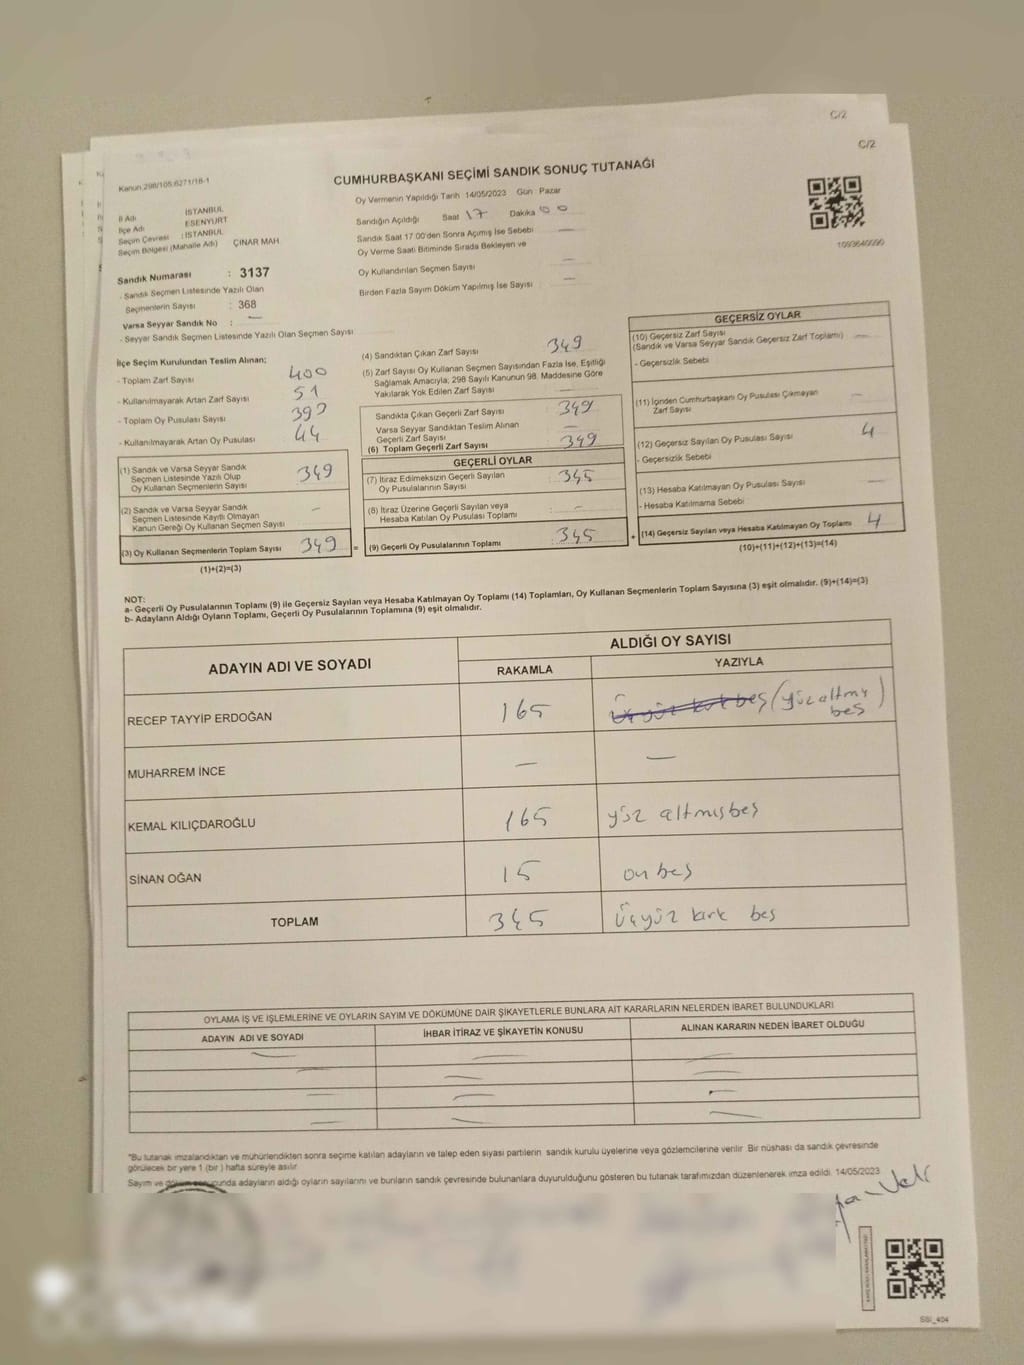 C/2
C/2
Kanun 298/105;6271/18-1
CUMHURBAŞKANI SEÇİMİ SANDIK SONUÇ TUTANAĞI
Oy Vermenin Yapıldığı Tarih 14/05/2023 Gün Pazar
İl Adı İSTANBUL
İlçe Adı ESENYURT
Seçim Çevresi : İSTANBUL
Seçim Bölgesi (Mahalle Adı) ÇINAR MAH
Sandığın Açıldığı Saat 17 Dakika 00
Sandık Saat 17:00'den Sonra Açımış İse Sebebi —
Oy Verme Saati Bitiminde Sırada Bekleyen ve
Oy Kullandırılan Seçmen Sayısı —
Birden Fazla Sayım Döküm Yapılmış İse Sayısı : —
1093640090
Sandık Numarası : 3137
- Sandık Seçmen Listesinde Yazılı Olan
Seçmenlerin Sayısı : 368
Varsa Seyyar Sandık No : —
- Seyyar Sandık Seçmen Listesinde Yazılı Olan Seçmen Sayısı
İlçe Seçim Kurulundan Teslim Alınan;
- Toplam Zarf Sayısı 400
- Kullanılmayarak Artan Zarf Sayısı 51
- Toplam Oy Pusulası Sayısı
- Kullanılmayarak Artan Oy Pusulası 44
(1) Sandık ve Varsa Seyyar Sandık
Seçmen Listesinde Yazılı Olup
Oy Kullanan Seçmenlerin Sayısı 349
(2) Sandık ve Varsa Seyyar Sandık
Seçmen Listesinde Kayıtlı Olmayan
Kanun Gereği Oy Kullanan Seçmen Sayısı —
(3) Oy Kullanan Seçmenlerin Toplam Sayısı 349 =
(1)+(2)=(3)
(4) Sandıktan Çıkan Zarf Sayısı 349
(5) Zarf Sayısı Oy Kullanan Seçmen Sayısından Fazla İse, Eşitliği
Sağlamak Amacıyla; 298 Sayılı Kanunun 98. Maddesine Göre
Yakılarak Yok Edilen Zarf Sayısı —
Sandıkta Çıkan Geçerli Zarf Sayısı 349
Varsa Seyyar Sandıktan Teslim Alınan
Geçerli Zarf Sayısı —
(6) Toplam Geçerli Zarf Sayısı 349
GEÇERLİ OYLAR
(7) İtiraz Edilmeksizin Geçerli Sayılan
Oy Pusulalarının Sayısı 345
(8) İtiraz Üzerine Geçerli Sayılan veya
Hesaba Katılan Oy Pusulası Toplamı : —
(9) Geçerli Oy Pusulalarının Toplamı 345 +
GEÇERSİZ OYLAR
(10) Geçersiz Zarf Sayısı
(Sandık ve Varsa Seyyar Sandık Geçersiz Zarf Toplamı) —
- Geçersizlik Sebebi
(11) İçinden Cumhurbaşkanı Oy Pusulası Çıkmayan
Zarf Sayısı —
(12) Geçersiz Sayılan Oy Pusulası Sayısı 4
- Geçersizlik Sebebi
(13) Hesaba Katılmayan Oy Pusulası Sayısı —
- Hesaba Katılmama Sebebi
(14) Geçersiz Sayılan veya Hesaba Katılmayan Oy Toplamı 4
(10)+(11)+(12)+(13)=(14)
NOT:
a- Geçerli Oy Pusulalarının Toplamı (9) ile Geçersiz Sayılan veya Hesaba Katılmayan Oy Toplamı (14) Toplamları, Oy Kullanan Seçmenlerin Toplam Sayısına (3) eşit olmalıdır. (9)+(14)=(3)
b- Adayların Aldığı Oyların Toplamı, Geçerli Oy Pusulalarının Toplamına (9) eşit olmalıdır.
ADAYIN ADI VE SOYADI ALDIĞI OY SAYISI
RAKAMLA YAZIYLA
RECEP TAYYİP ERDOĞAN 165 Üçyüz kırk beş (yüz altmış beş)
MUHARREM İNCE — —
KEMAL KILIÇDAROĞLU 165 yüz altmışbeş
SİNAN OĞAN 15 on beş
TOPLAM 345 Üçyüz kırk beş
OYLAMA İŞ VE İŞLEMLERİNE VE OYLARIN SAYIM VE DÖKÜMÜNE DAİR ŞİKAYETLERLE BUNLARA AİT KARARLARIN NELERDEN İBARET BULUNDUKLARI
ADAYIN ADI VE SOYADI İHBAR İTİRAZ VE ŞİKAYETİN KONUSU ALINAN KARARIN NEDEN İBARET OLDUĞU
"Bu tutanak imzalandıktan ve mühürlendikten sonra seçime katılan adayların ve talep eden siyasi partilerin sandık kurulu üyelerine veya gözlemcilerine verilir. Bir nüshası da sandık çevresinde
görülecek bir yere 1 (bir ) hafta süreyle asılır
Sayım ve döküm sonucunda adayların aldığı oyların sayılarını ve bunların sandık çevresinde bulunanlara duyurulduğunu gösteren bu tutanak tarafımızdan düzenlenerek imza edildi. 14/05/2023
SSI_404